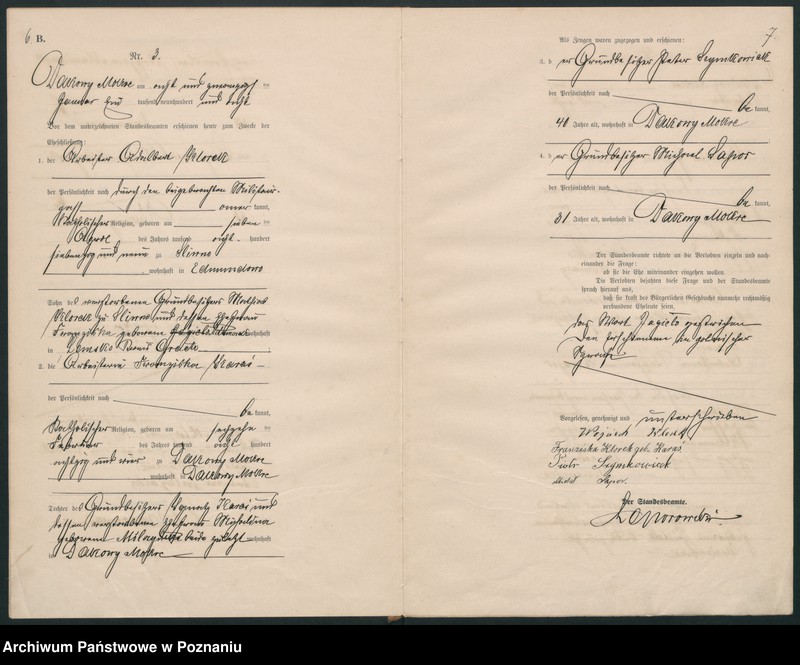 6 B.
Nr. 3.
Dakowy Mokre am acht und zwanzigsten
Januar tausend neunhundert und acht
Vor dem unterzeichneten Standesbeamten erschienen heute zum Zwecke der
Eheschließung:
1. der Arbeiter Adalbert Klorek
der Persönlichkeit nach durch den beigebrachten Militair-
pass kannt,
katholischer Religion, geboren am sieben
April des Jahres tausend acht hundert
siebenzig und neun zu Slinno
, wohnhaft in Edmundowo
Sohn des verstorbenen Grundbesitzers
Klorek zu Slinno und dessen Ehefrau
Franziska geborenen wohnhaft
in Kreis Grätz
2. die Arbeiterin Franziska Karaś
der Persönlichkeit nach
be kannt,
katholischer Religion, geboren am sechzehn
Februar des Jahres tausend acht hundert
achtzig und vier zu Dakowy Mokre
, wohnhaft in Dakowy Mokre
Tochter des Grundbesitzers Ignatz Karaś und
dessen verstorbene Ehefrau Michalina
geborenen beide zuletzt wohnhaft
in Dakowy Mokre
7.
Als Zeugen waren zugezogen und erschienen:
3. der Grundbesitzer Peter Szymkowiak
der Persönlichkeit nach
be kannt,
40 Jahre alt, wohnhaft in Dakowy Mokre
4. der Grundbesitzer Michael Sapor
der Persönlichkeit nach
be kannt,
31 Jahre alt, wohnhaft in Dakowy Mokre
Der Standesbeamte richtete an die Verlobten einzeln und nach-
einander die Frage:
ob sie die Ehe miteinander eingehen wollen.
Die Verlobten bejahten diese Frage und der Standesbeamte
sprach hierauf aus,
daß sie kraft des Bürgerlichen Gesetzbuchs nunmehr rechtmäßig
verbundene Eheleute seien.
Das Wort gestrichen
Den Erschienenen in polnischer
Sprache
Vorgelesen, genehmigt und unterschrieben
Wojciech Klorek
Franziska Klorek geb. Karaś
Piotr Szymkowiak
Michał Sapor.
Der Standesbeamte.
Archiwum Państwowe w Poznaniu